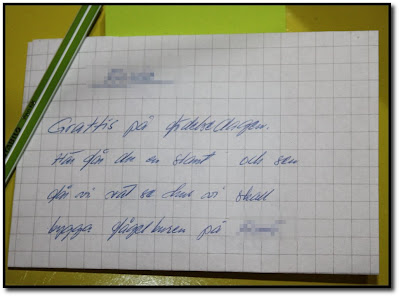 Grattis på födelsedagen.
Här får du en slant och sen
får vi väl se hur vi skall
bygga fågelburen på